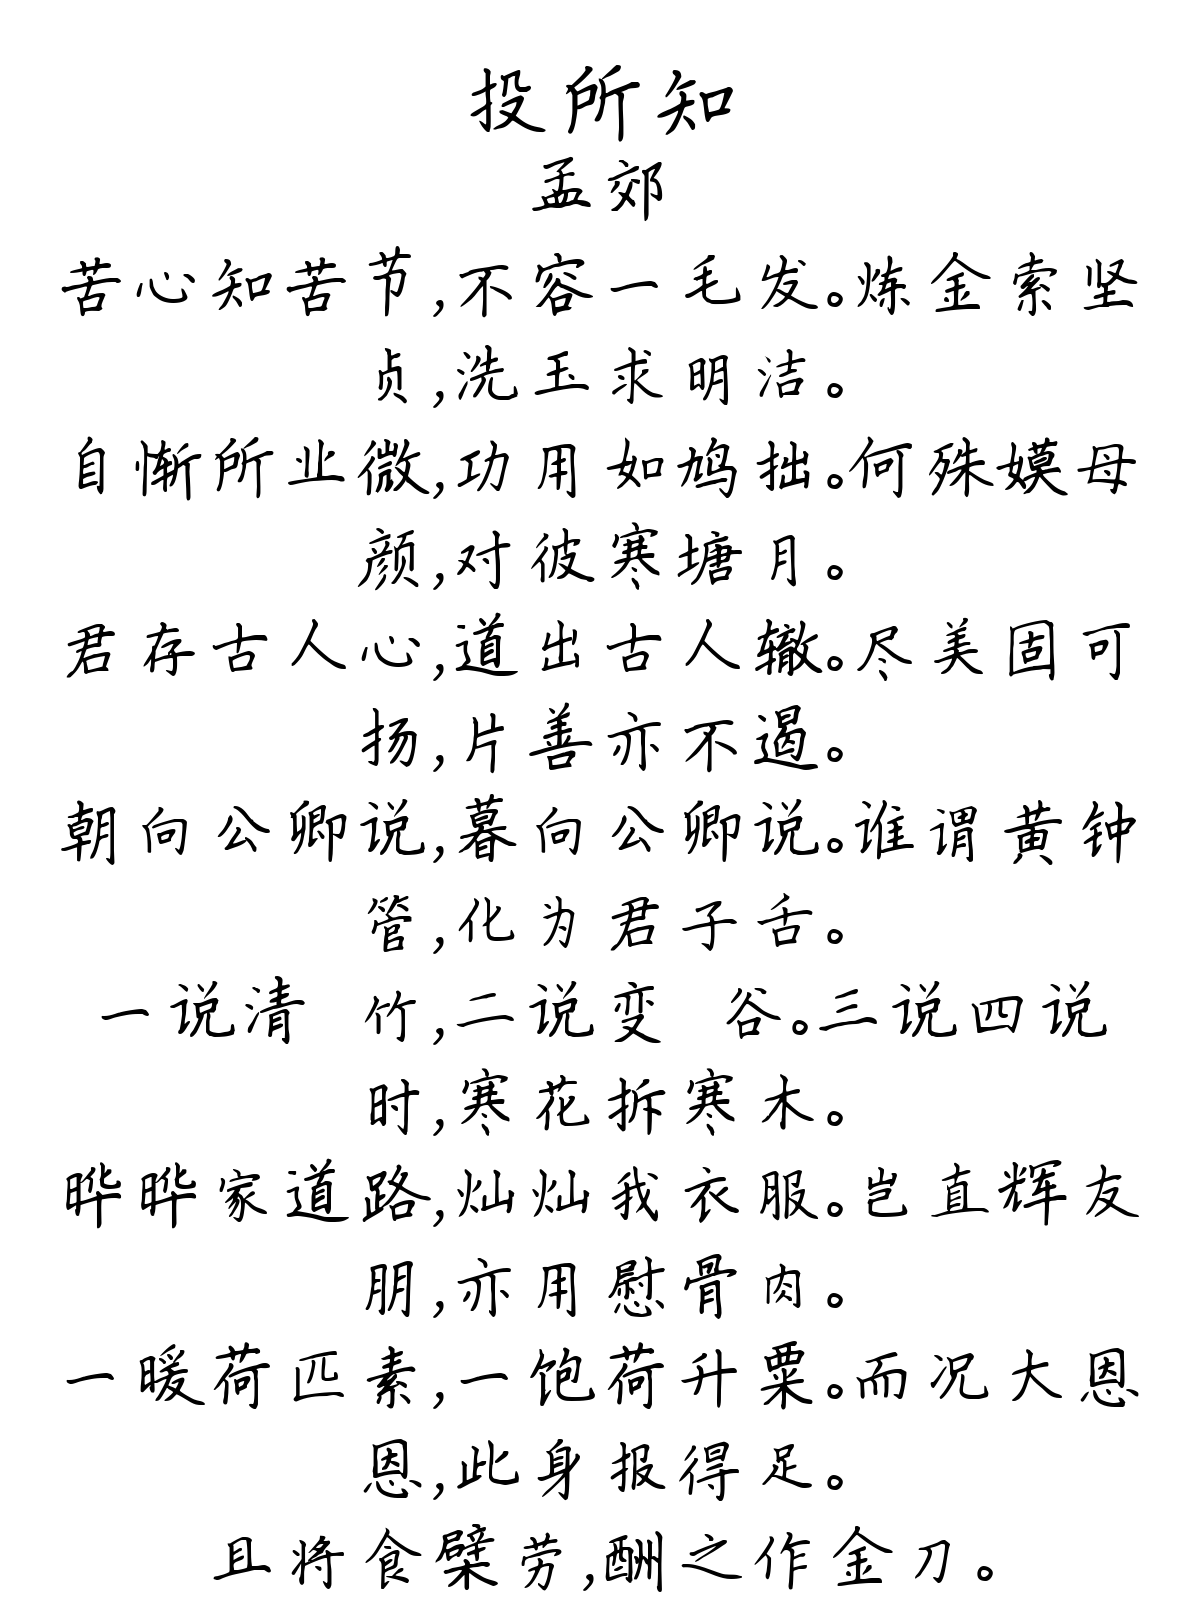 投所知
孟郊
苦心知苦节,不容一毛发。炼金索坚
贞,洗玉求明洁。
自惭所业微,功用如鸠拙。何殊嫫母
颜,对彼寒塘月。
君存古人心,道出古人辙。尽美固可
扬,片善亦不遏。
朝向公卿说,暮向公卿说。谁谓黄钟
管,化为君子舌。
一说清 竹,二说变 谷。三说四说
时,寒花拆寒木。
晔晔家道路,灿灿我衣服。岂直辉友
朋,亦用慰骨肉。
一暖荷匹素,一饱荷升粟。而况大恩
恩,此身报得足。
且将食檗劳,酬之作金刀。